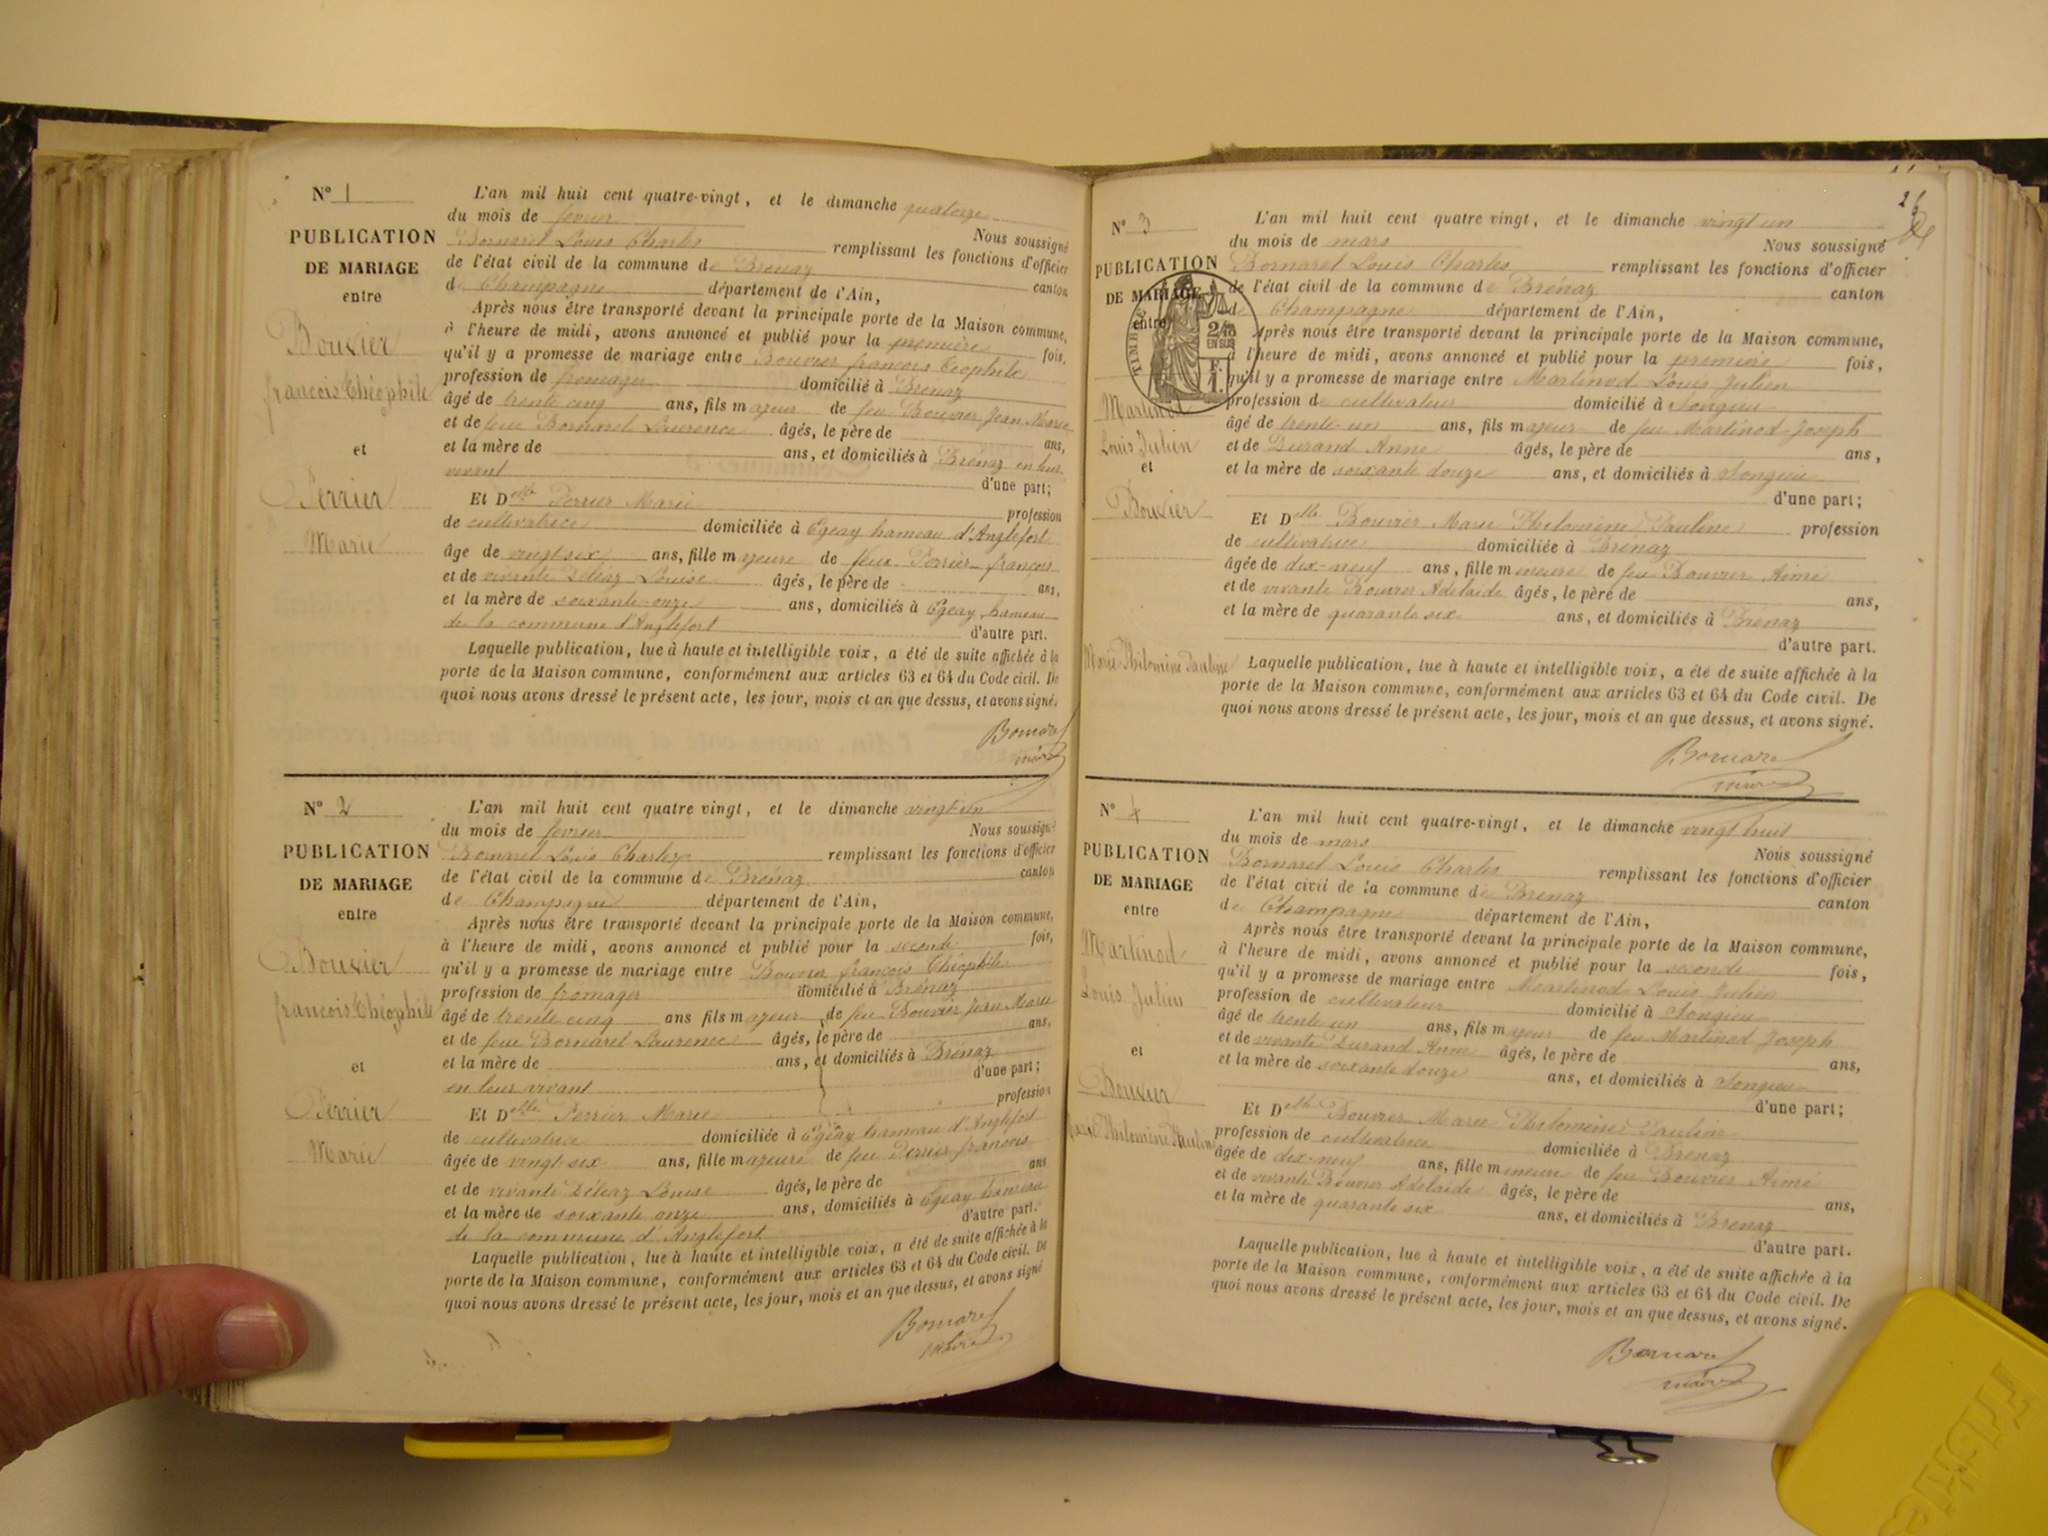 N° 1
PUBLICATION
DE MARIAGE
entre
Bouvier
françois Théophile
et
Perrier
Marie
L'an mil huit cent quatre-vingt, et le dimanche quatorze
du mois de fevrier Nous soussigné
Bornarel Louis Charles remplissant les fonctions d'officier
de l'état civil de la commune de Brénaz canton
de Champagne département de l'Ain,
Après nous être transporté devant la principale porte de la Maison commune,
à l'heure de midi, avons annoncé et publié pour la première fois,
qu'il y a promesse de mariage entre Bouvier françois Théophile
profession de fromager domicilié à Brénaz
âgé de trente cinq ans, fils majeur de feu Bouvier Jean Marie
et de feue Bornarel Laurence âgés, le père de ans,
et la mère de ans, et domiciliés à Brénaz en leur
vivant d'une part;
Et Dlle Perrier Marie profession
de cultivatrice domiciliée à Egeay hameau d'Anglefort
âge de vingt six ans, fille majeure de feux Perrier françois
et de vivante Déléaz Louise âgés, le père de ans,
et la mère de soixante-onze ans, domiciliés à Egeay, hameau
de la commune d'Anglefort d'autre part.
Laquelle publication, lue à haute et intelligible voix, a été de suite affichée à la
porte de la Maison commune, conformément aux articles 63 et 64 du Code civil. De
quoi nous avons dressé le présent acte, les jour, mois et an que dessus, et avons signé.
Bornarel
maire
N° 2
PUBLICATION
DE MARIAGE
entre
Bouvier
françois Théophile
et
Perrier
Marie
L'an mil huit cent quatre vingt, et le dimanche vingt un
du mois de fevrier Nous soussigné
Bornarel Louis Charles remplissant les fonctions d'officier
de l'état civil de la commune de Brénaz canton
de Champagne département de l'Ain,
Après nous être transporté devant la principale porte de la Maison commune,
à l'heure de midi, avons annoncé et publié pour la seconde fois,
qu'il y a promesse de mariage entre Bouvier françois Théophile
profession de fromager domicilié à Brénaz
âgé de trente cinq ans fils majeur de feu Bouvier Jean Marie
et de feue Bornarel Laurence âgés, le père de ans,
et la mère de ans, et domiciliés à Brénaz
en leur vivant d'une part;
Et Dlle Perrier Marie profession
de cultivatrice domiciliée à Egeay hameau d'Anglefort
âgée de vingt-six ans, fille majeure de feu Perrier françois
et de vivante Déléaz Louise âgés, le père de ans
et la mère de soixante onze ans, domiciliés à Egeay hameau
de la commune d'Anglefort d'autre part.
Laquelle publication, lue à haute et intelligible voix, a été de suite affichée à la
porte de la Maison commune, conformément aux articles 63 et 64 du Code civil. De
quoi nous avons dressé le présent acte, les jour, mois et an que dessus, et avons signé
Bornarel
maire
26
N° 3
PUBLICATION
DE MARIAGE
entre
TIMBRE
2/10
EN SUS
F.
1.
Martinod
Louis Julien
et
Bouvier
Marie Philomène Pauline
L'an mil huit cent quatre vingt, et le dimanche vingt un
du mois de mars Nous soussigné
Bornarel Louis Charles remplissant les fonctions d'officier
de l'état civil de la commune de Brénaz canton
de Champagne département de l'Ain,
Après nous être transporté devant la principale porte de la Maison commune,
à l'heure de midi, avons annoncé et publié pour la premiere fois,
qu'il y a promesse de mariage entre Martinod Louis Julien
profession de cultivateur domicilié à Songieu
âgé de trente-un ans, fils majeur de feu Martinod Joseph
et de Durand Anne âgés, le père de ans,
et la mère de soixante douze ans, et domiciliés à Songieu
d'une part;
Et Dlle Bouvier Marie Philomène Pauline profession
de cultivatrice domiciliée à Brénaz
âgée de dix-neuf ans, fille mineure de feu Bouvier Aimé
et de vivante Bouvier Adelaide âgés, le père de ans,
et la mère de quarante six ans, et domiciliés à Brénaz
d'autre part.
Laquelle publication, lue à haute et intelligible voix, a été de suite affichée à la
porte de la Maison commune, conformément aux articles 63 et 64 du Code civil. De
quoi nous avons dressé le présent acte, les jour, mois et an que dessus, et avons signé.
Bornarel
maire
N° 4
PUBLICATION
DE MARIAGE
entre
Martinod
Louis Julien
et
Bouvier
Marie Philomène Pauline
L'an mil huit cent quatre-vingt, et le dimanche vingt huit
du mois de mars Nous soussigné
Bornarel Louis Charles remplissant les fonctions d'officier
de l'état civil de la commune de Brénaz canton
de Champagne département de l'Ain,
Après nous être transporté devant la principale porte de la Maison commune,
à l'heure de midi, avons annoncé et publié pour la seconde fois,
qu'il y a promesse de mariage entre Martinod Louis Julien
profession de cultivateur domicilié à Songieu
âgé de trente un ans, fils majeur de feu Martinod Joseph
et de vivante Durand Anne âgés, le père de ans,
et la mère de soixante douze ans, et domiciliés à Songieu
d'une part;
Et Dlle Bouvier Marie Philomène Pauline
profession de cultivatrice domiciliée à Brénaz
âgée de dix-neuf ans, fille mineure de feu Bouvier Aimé
et de vivante Bouvier Adelaide âgés, le père de ans,
et la mère de quarante six ans, et domiciliés à Brénaz
d'autre part.
Laquelle publication, lue à haute et intelligible voix, a été de suite affichée à la
porte de la Maison commune, conformément aux articles 63 et 64 du Code civil. De
quoi nous avons dressé le présent acte, les jour, mois et an que dessus, et avons signé.
Bornarel
maire